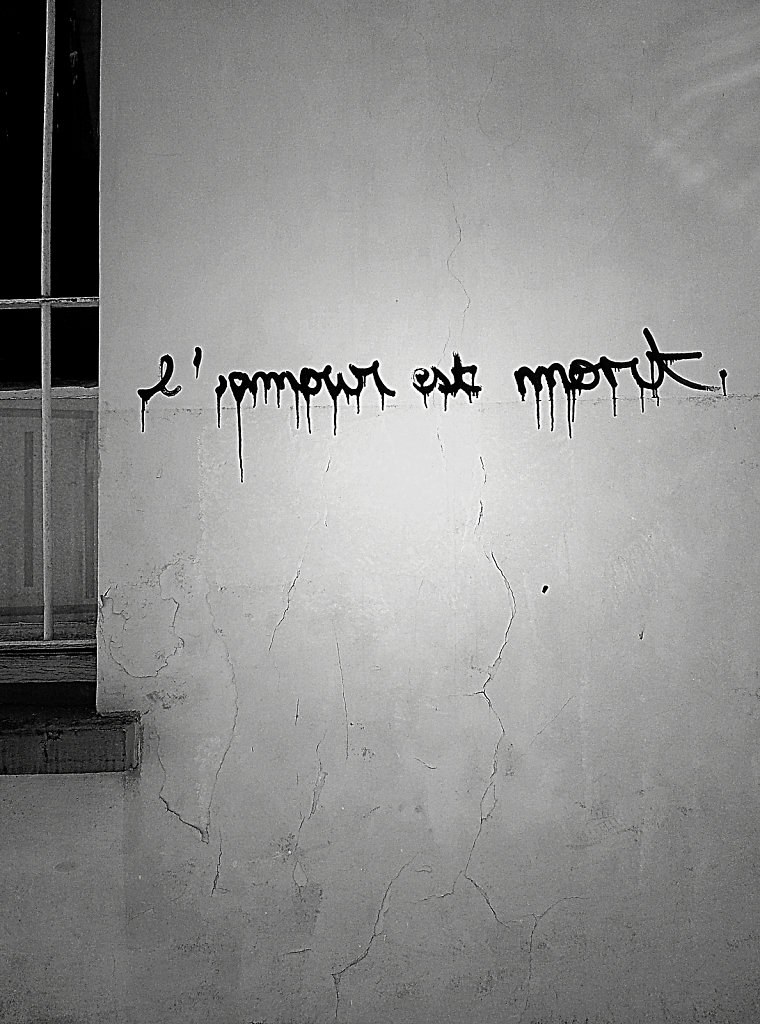 l'amour est mort.